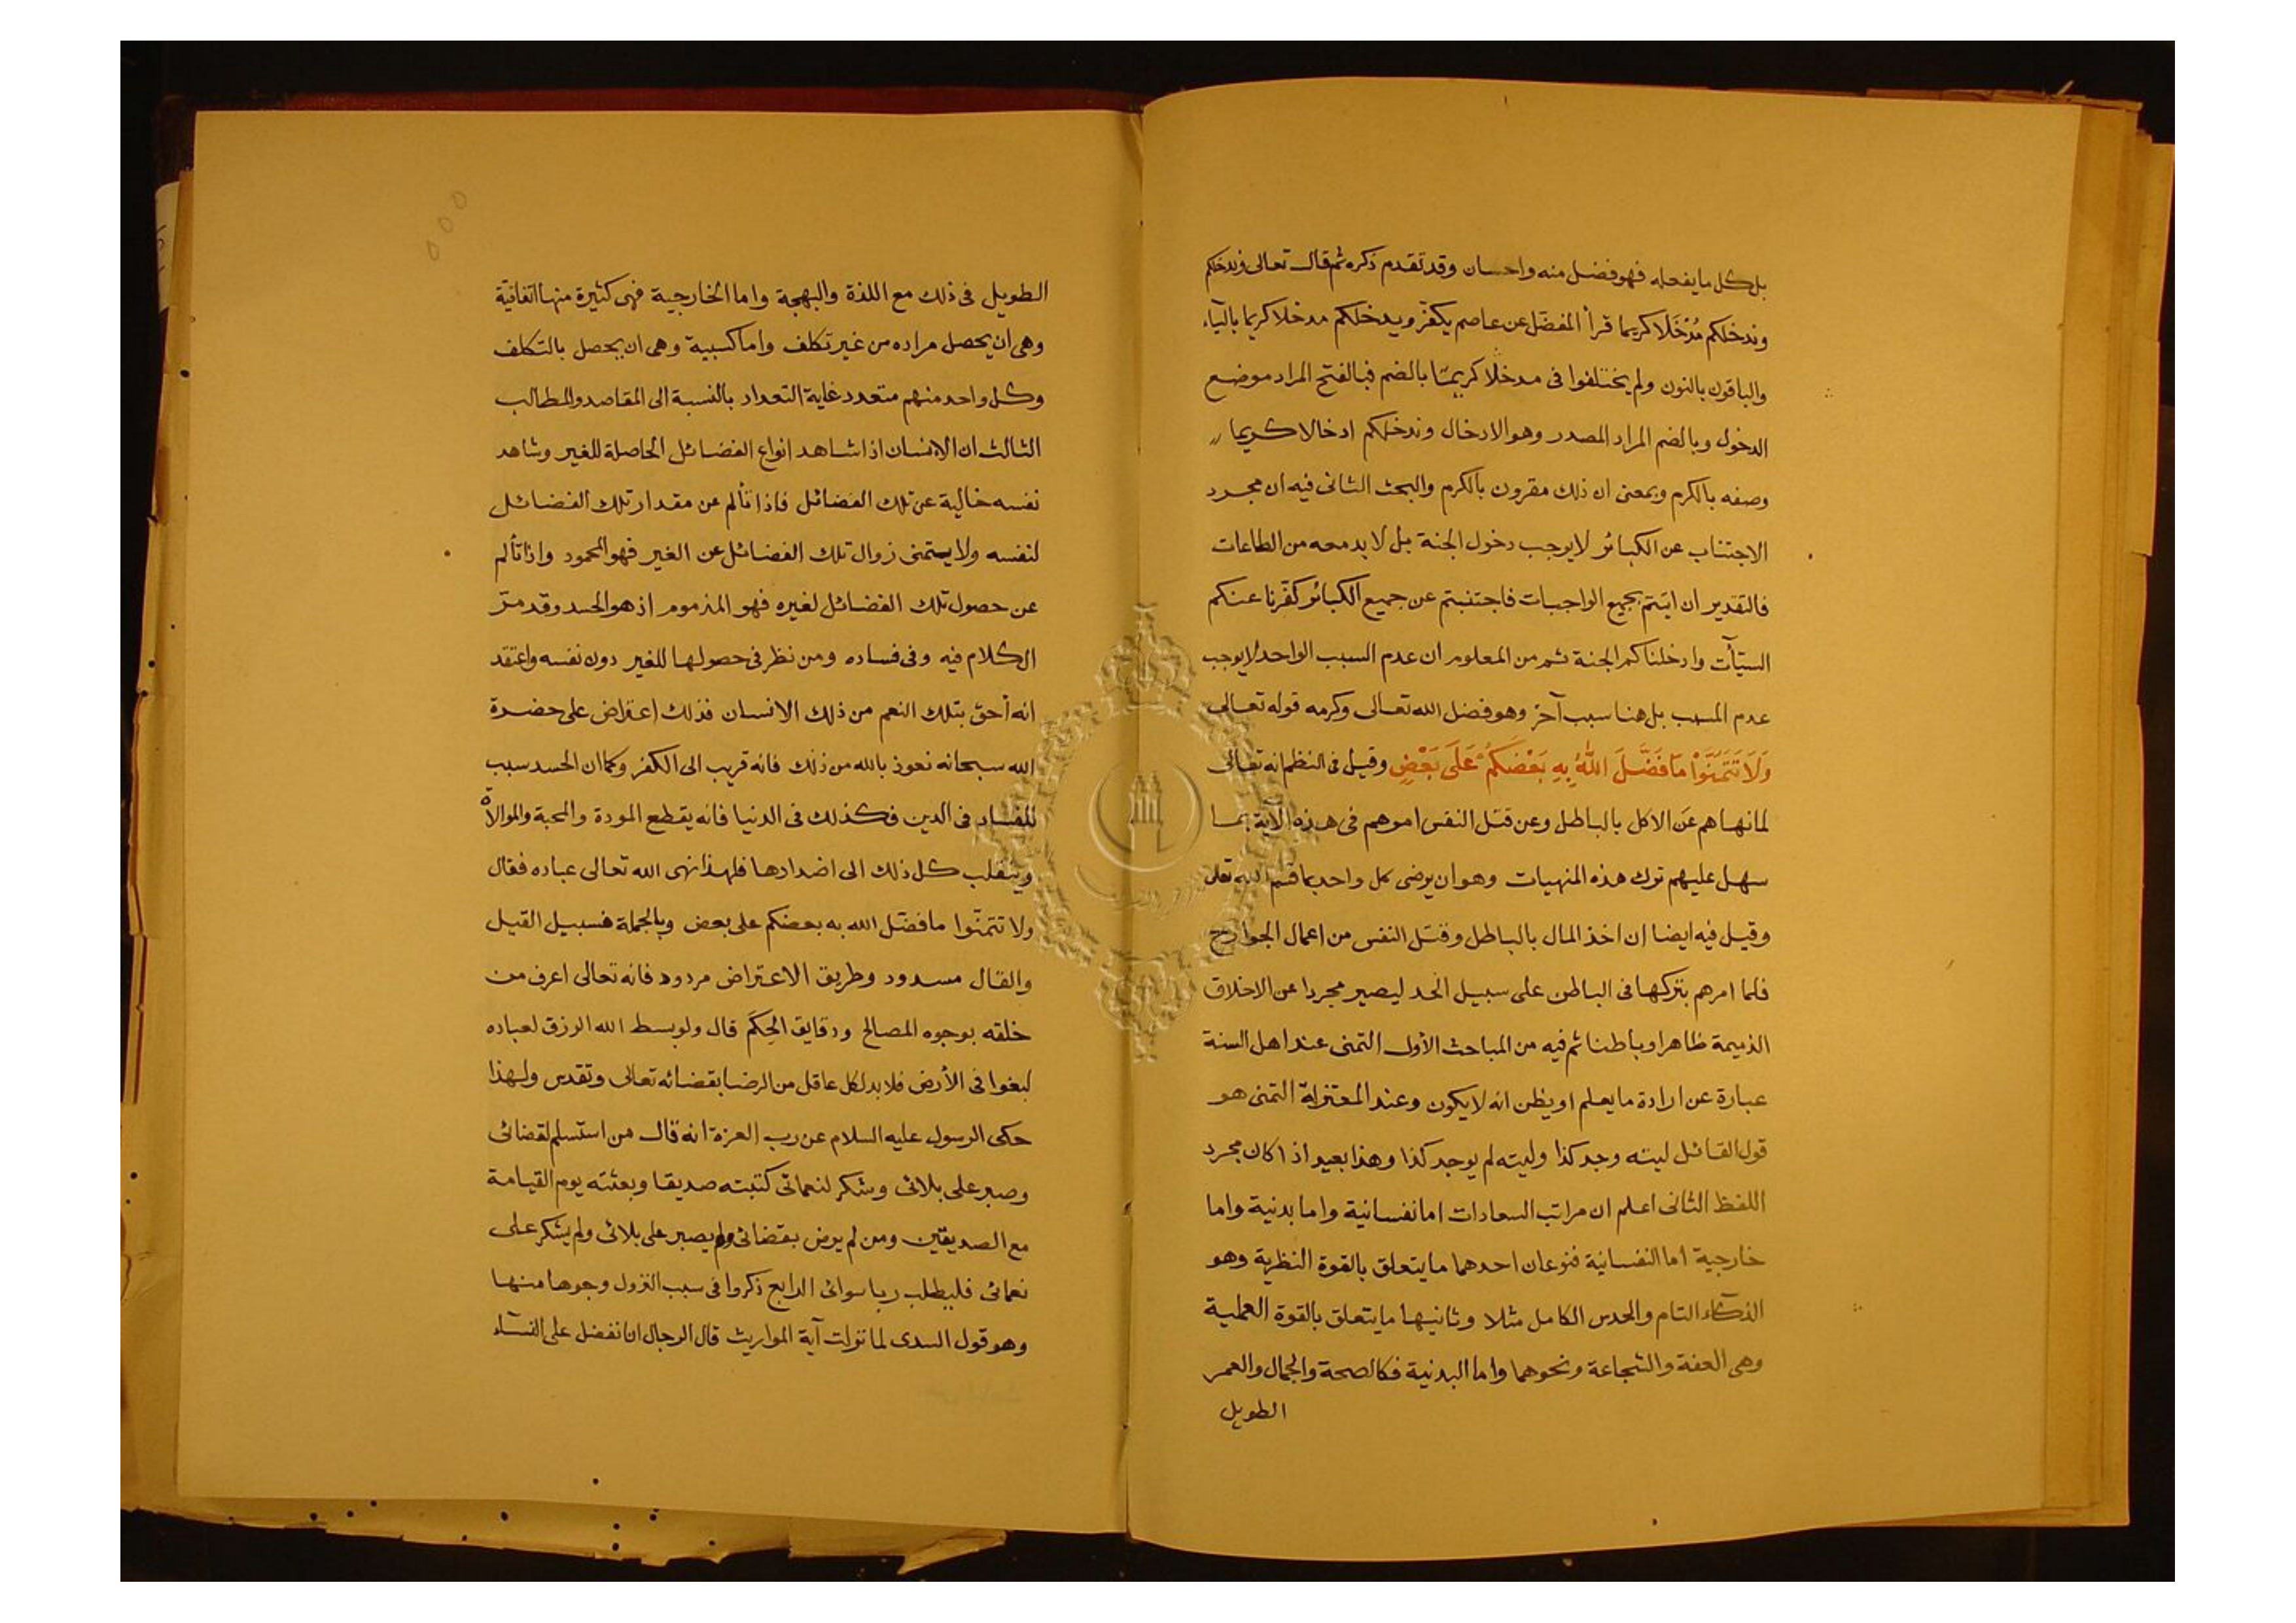 بل كل ما يفعله فهو فضل منه واحسان وقد تقدم ذكره ثم قال تعالى وندخلكم
وندخلكم مُدْخَلًا كريما قرأ المفضّل عن عاصم يكفّر ويدخلكم مدخلا كريما بالياء
والباقون بالنون ولم يختلفوا فى مدخلًا كريمًا بالضم فبالفتح المراد موضع
الدخول وبالضم المراد المصدر وهو الادخال وندخلكم ادخالا كريما
وصفه بالكرم وبمعنى ان ذلك مقرون بالكرم والبحث الثانى فيه ان مجرد
الاجتناب عن الكبائر لا يوجب دخول الجنة بل لا بد معه من الطاعات
فالتقدير ان اتيتم بجميع الواجبات فاجتنبتم عن جميع الكبائر كفّرنا عنكم
السيّآت وادخلناكم الجنة ثم من المعلوم ان عدم السبب الواحد لا يوجب
عدم المسبب بل هنا سبب آخر وهو فضل الله تعالى وكرمه قوله تعالى
وَلَا تَتَمَنَّوْا مَا فَضَّلَ اللهُ بِهِ بَعْضَكُمْ عَلَى بَعْضٍ وقيل فى النظم انه تعالى
لما نهاهم عن الاكل بالباطل وعن قتل النفس امرهم فى هذه الآية بما
سهل عليهم ترك هذه المنهيات وهو ان يرضى كل واحد بما قسم الله تعالى
وقيل فيه ايضا ان اخذ المال بالباطل وقتل النفس من اعمال الجوارح
فلما امرهم بتركها فى الباطن على سبيل الحد ليصير مجردا عن الاخلاق
الذميمة ظاهرا وباطنا ثم فيه من المباحث الأول التمنى عند اهل السنة
عبارة عن ارادة ما يعلم او يظن انه لا يكون وعند المعتزلة التمنى هو
قول القائل ليته وجد كذا وليته لم يوجد كذا وهذا بعيد اذا كان مجرد
اللفظ الثانى اعلم ان مراتب السعادات اما نفسانية واما بدنية واما
خارجية اما النفسانية فنوعان احدهما ما يتعلق بالقوة النظرية وهو
الذكاء التام والحدس الكامل مثلا وثانيها ما يتعلق بالقوة العملية
وهى العفة والشجاعة ونحوهما واما البدنية فكالصحة والجمال والعمر
الطويل
الطويل فى ذلك مع اللذة والبهجة واما الخارجية فهى كثيرة منها اتفاقيّة
وهى ان يحصل مراده من غير تكلف واما كسبية وهى ان يحصل بالتكلف
وكل واحد منهم متعدد غاية التعداد بالنسبة الى المقاصد والمطالب
الثالث ان الانسان اذا شاهد انواع الفضائل الحاصلة للغير وشاهد
نفسه خالية عن تلك الفضائل فاذا تألم عن مقدار تلك الفضائل
لنفسه ولا يتمنى زوال تلك الفضائل عن الغير فهو المحمود واذا تألم
عن حصول تلك الفضائل لغيره فهو المذموم اذ هو الحسد وقد مرّ
الكلام فيه وفى فساده ومن نظر فى حصولها للغير دون نفسه واعتقد
انه أحق بتلك النعم من ذلك الانسان فذلك اعتراض على حضرة
الله سبحانه نعوذ بالله من ذلك فانه قريب الى الكفر وكما ان الحسد سبب
للفساد فى الدين فكذلك فى الدنيا فانه يقطع المودة والمحبة والموالاة
وينقلب كل ذلك الى اضدادها فلهذا نهى الله تعالى عباده فقال
ولا تتمنّوا ما فضّل الله به بعضكم على بعض وبالجملة فسبيل القيل
والقال مسدود وطريق الاعتراض مردود فانه تعالى اعرف من
خلقه بوجوه المصالح ودقايق الحِكَم قال ولو بسط الله الرزق لعباده
لبغوا فى الأرض فلا بد لكل عاقل من الرضا بقضائه تعالى وتقدس ولهذا
حكى الرسول عليه السلام عن رب العزة انه قال من استسلم لقضائى
وصبر على بلائى وشكر لنعمائى كتبته صديقا وبعثته يوم القيامة
مع الصديقين ومن لم يرض بقضائى ولم يصبر على بلائى ولم يشكر على
نعمائى فليطلب ربا سوائى الرابع ذكروا فى سبب النزول وجوها منها
وهو قول السدى لما نزلت آية المواريث قال الرجال انا نفضل على النساء